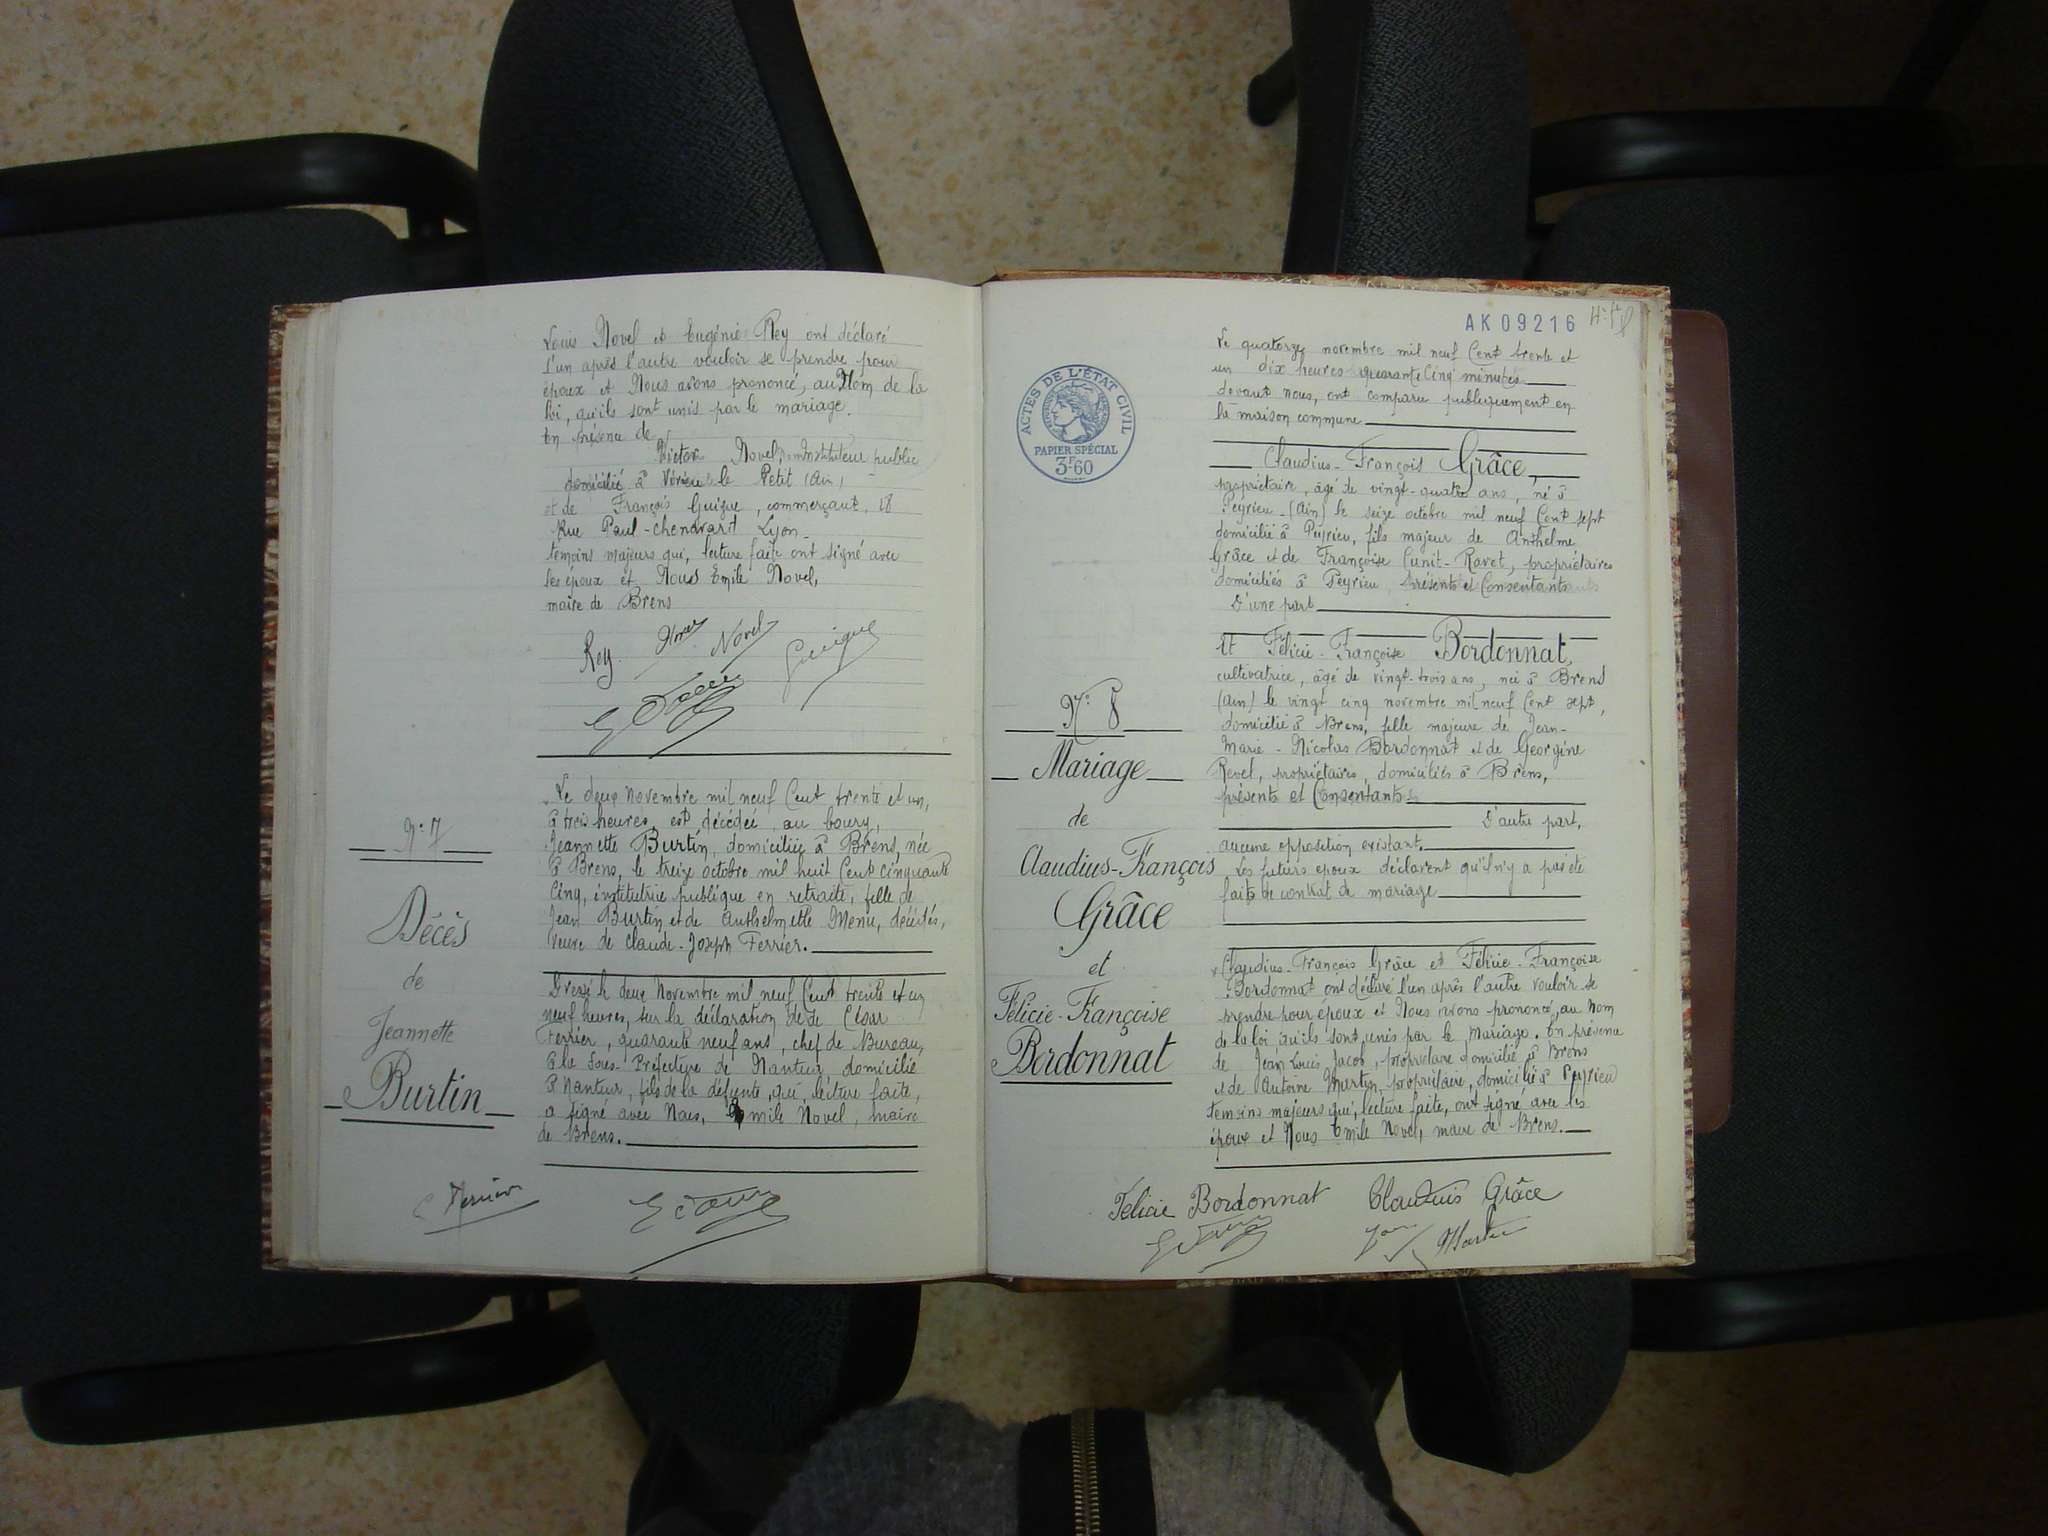 Louis Novel et Eugénie Rey ont déclaré
l'un après l'autre vouloir se prendre pour
époux et Nous avons prononcé, au Nom de la
loi, qu'ils sont unis par le mariage.
En présence de
Victor Novel, instituteur public
domicilié à Vérieu le Petit (Ain)
et de François Guigue, commerçant, 18
Rue Paul-Chenavard Lyon
témoins majeurs qui, lecture faite ont signé avec
les époux et Nous Emile Novel,
maire de Brens
Rey Novel Guigue
N° 7
Décès
de
Jeannette
Burtin
Le deux Novembre mil neuf Cent trente et un,
à trois heures, est décédée, au bourg,
Jeannette Burtin, domiciliée à Brens, née
à Brens, le treize octobre mil huit Cent cinquante
Cinq, institutrice publique en retraite, fille de
Jean Burtin et de Anthelmette Menu, décédés,
Veuve de Claude-Joseph Ferrier.
Dressé le deux Novembre mil neuf Cent trente et un
neuf heures, sur la déclaration de César
Ferrier, quarante neuf ans, chef de Bureau,
à la Sous-Préfecture de Nantua, domicilié
à Nantua, fils de la défunte, qui, lecture faite,
a signé avec Nous, Emile Novel, maire
de Brens.
AK 09216
ACTES DE L'ÉTAT CIVIL
PAPIER SPÉCIAL
3F60
N° 8
Mariage
de
Claudius-François
Grâce
et
Félicie-Françoise
Bordonnat
Le quatorze novembre mil neuf Cent trente et
un dix heures quarante Cinq minutes
devant nous, ont comparu publiquement en
la maison commune
Claudius-François Grâce,
propriétaire, âgé de vingt-quatre ans, né à
Peyrieu (Ain) le seize octobre mil neuf Cent sept
domicilié à Peyrieu, fils majeur de Anthelme
Grâce et de Françoise Cunit-Ravet, propriétaires
domiciliés à Peyrieu, présents et Consentants
D'une part
Et Félicie-Françoise Bordonnat,
cultivatrice, âgé de vingt-trois ans, née à Brens
(Ain) le vingt cinq novembre mil neuf Cent sept,
domicilié à Brens, fille majeure de Jean-
Marie-Nicolas Bordonnat et de Georgine
Revet, propriétaires, domiciliés à Brens,
présents et Consentants
D'autre part,
aucune opposition existant.
Les futurs époux déclarent qu'il n'y a pas été
fait de contrat de mariage
Claudius-François Grâce et Félicie-Françoise
Bordonnat ont déclaré l'un après l'autre vouloir se
prendre pour époux et Nous avons prononcé, au nom
de la loi qu'ils sont unis par le Mariage. En présence
de Jean Louis Jacob, propriétaire domicilié à Brens
et de Antoine Martin, propriétaire, domicilié à Peyrieu
témoins majeurs qui, lecture faite, ont signé avec les
époux et Nous Emile Novel, maire de Brens.
Félicie Bordonnat Claudius Grâce
Martin